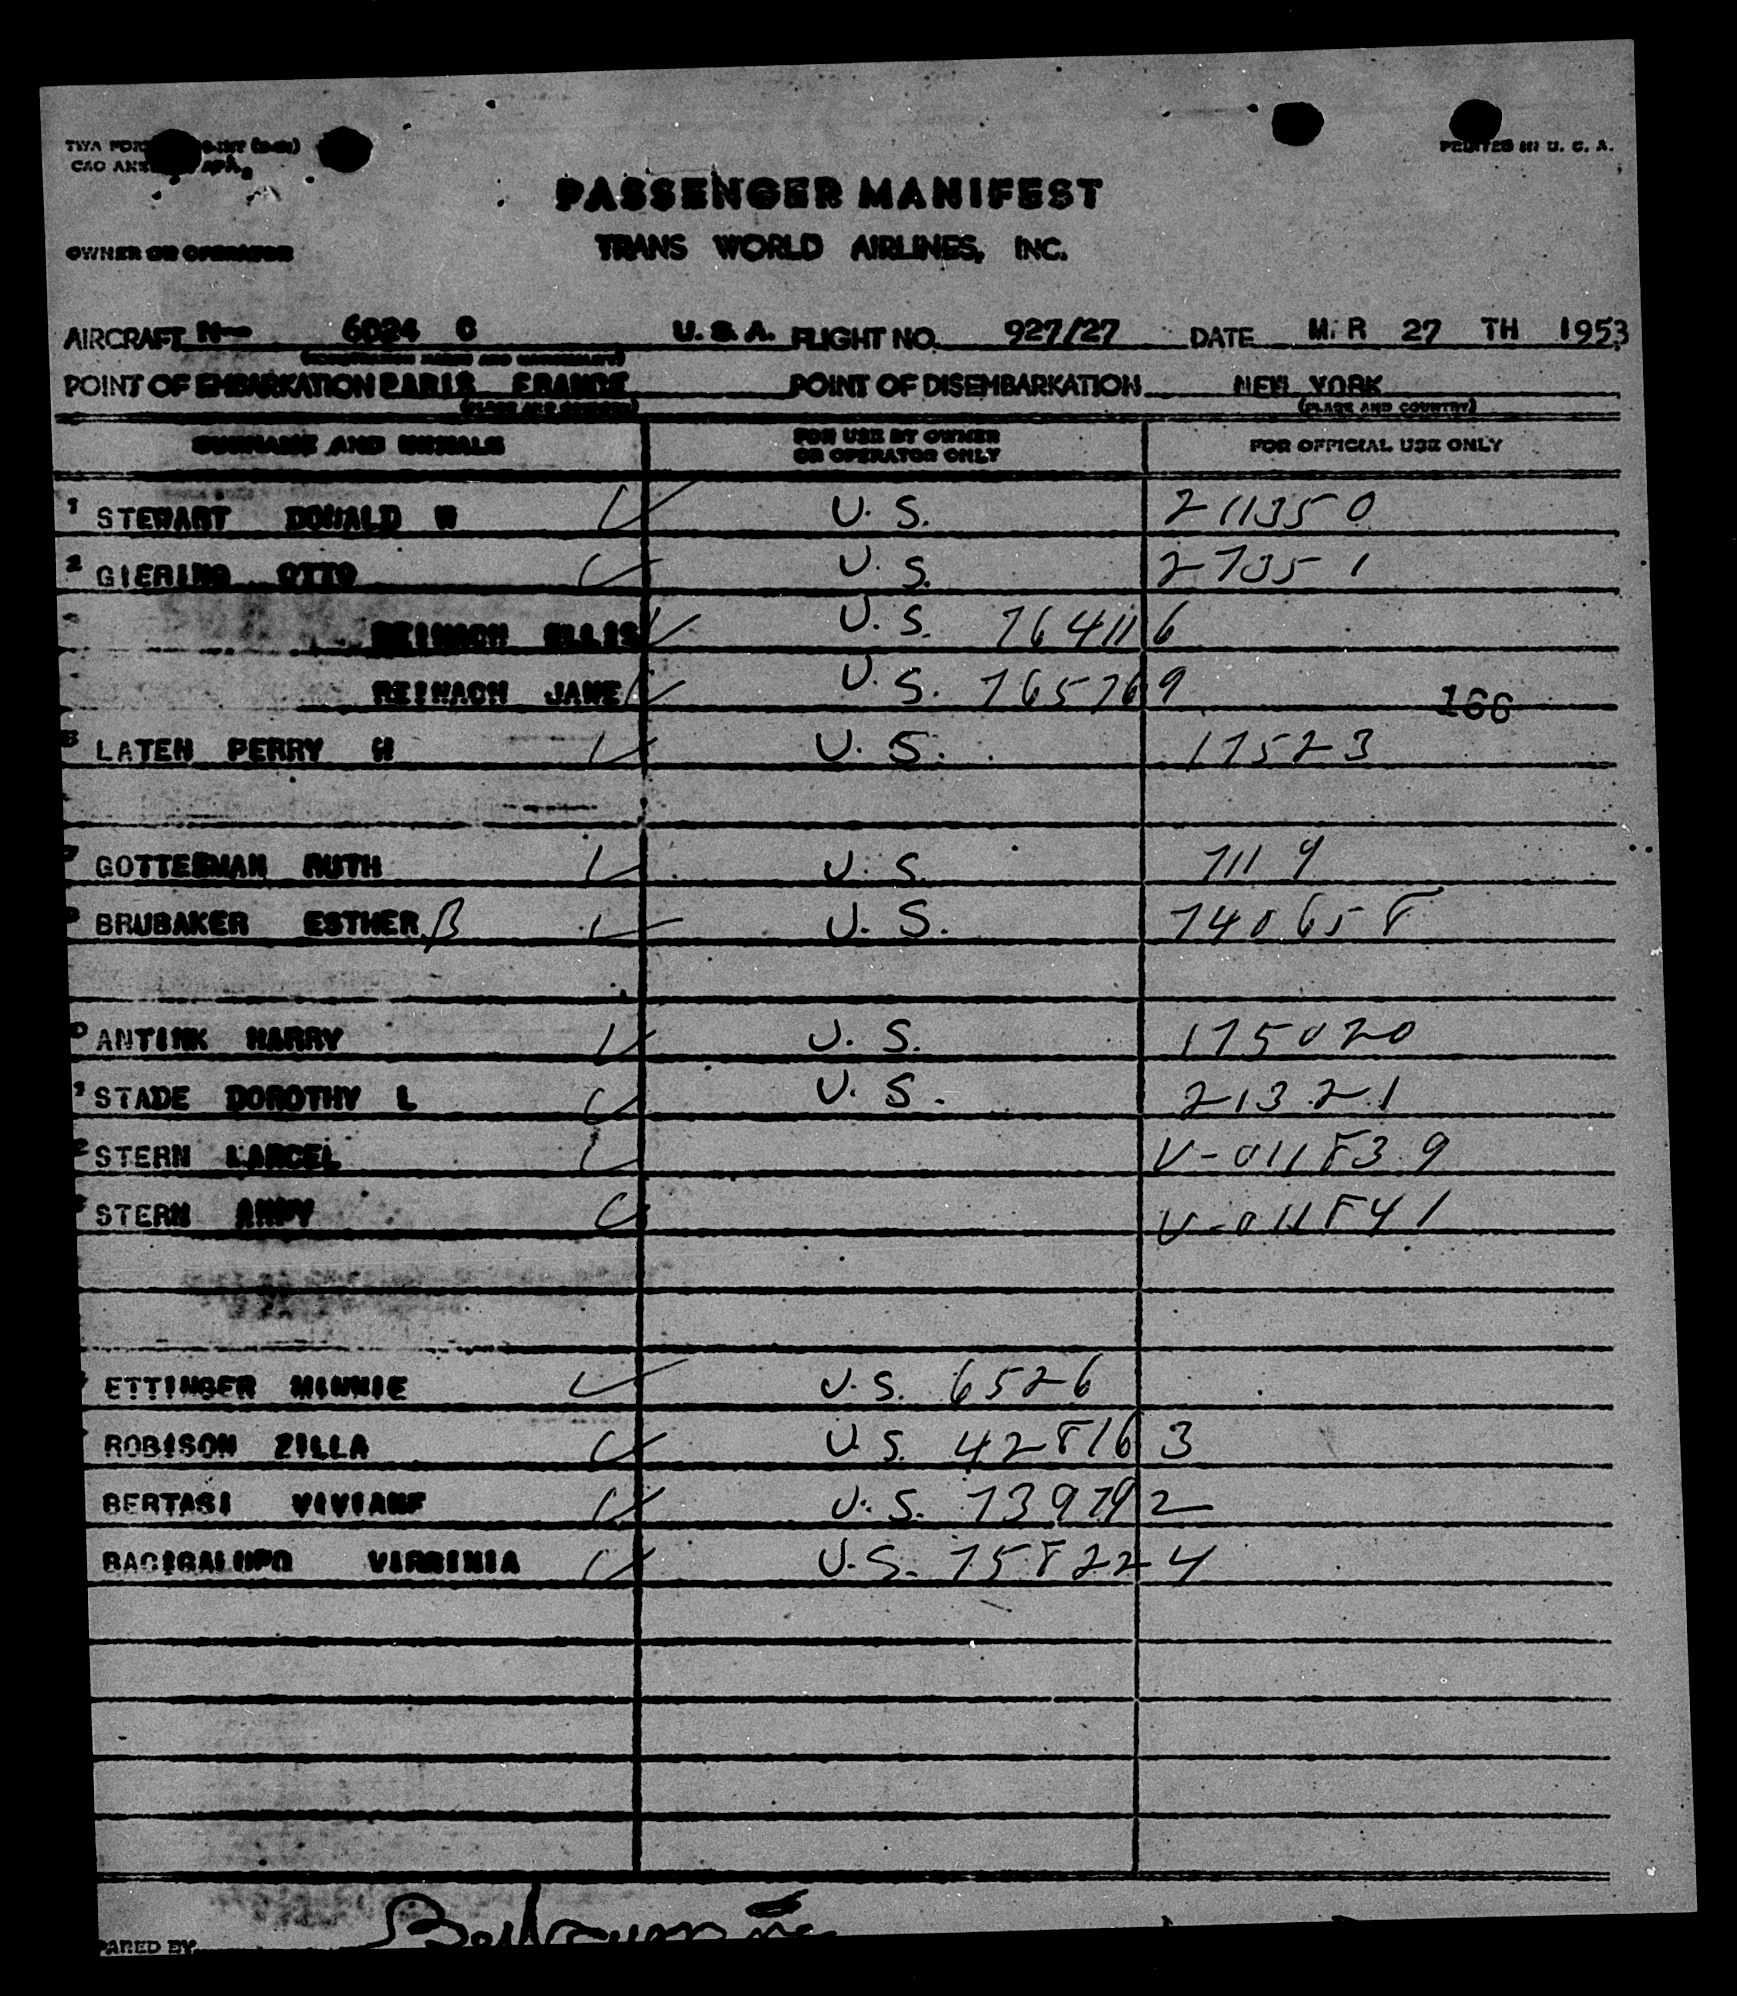 PRINTED IN U. S. A.
PASSENGER MANIFEST
OWNER OR OPERATOR TRANS WORLD AIRLINES, INC.
AIRCRAFT N- 6024 C U.S.A. FLIGHT NO. 927/27 DATE MAR 27 TH 1953
(REGISTRATION MARKS AND NATIONALITY)
POINT OF EMBARKATION PARIS FRANCE POINT OF DISEMBARKATION NEW YORK
(PLACE AND COUNTRY) (PLACE AND COUNTRY)
SURNAME AND INITIALS FOR USE BY OWNER OR OPERATOR ONLY FOR OFFICIAL USE ONLY
1 STEWART DONALD W U.S. 211350
2 GIERING OTTO U.S. 27351
REINACH ELLIS U.S. 764116
REINACH JANE U.S. 765769
166
5 LATEN PERRY H U.S. 17523
7 GOTTESMAN RUTH U.S. 7119
BRUBAKER ESTHER B U.S. 740658
ANTINK HARRY U.S. 175020
STADE DOROTHY L U.S. 21321
STERN MARCEL V-011839
STERN V-011841
ETTINGER MINNIE U.S. 6526
ROBISON ZILLA U.S. 428163
BERTASI VIVIANE U.S. 739792
BACIGALUPO VIRGINIA U.S. 758224
PARED BY